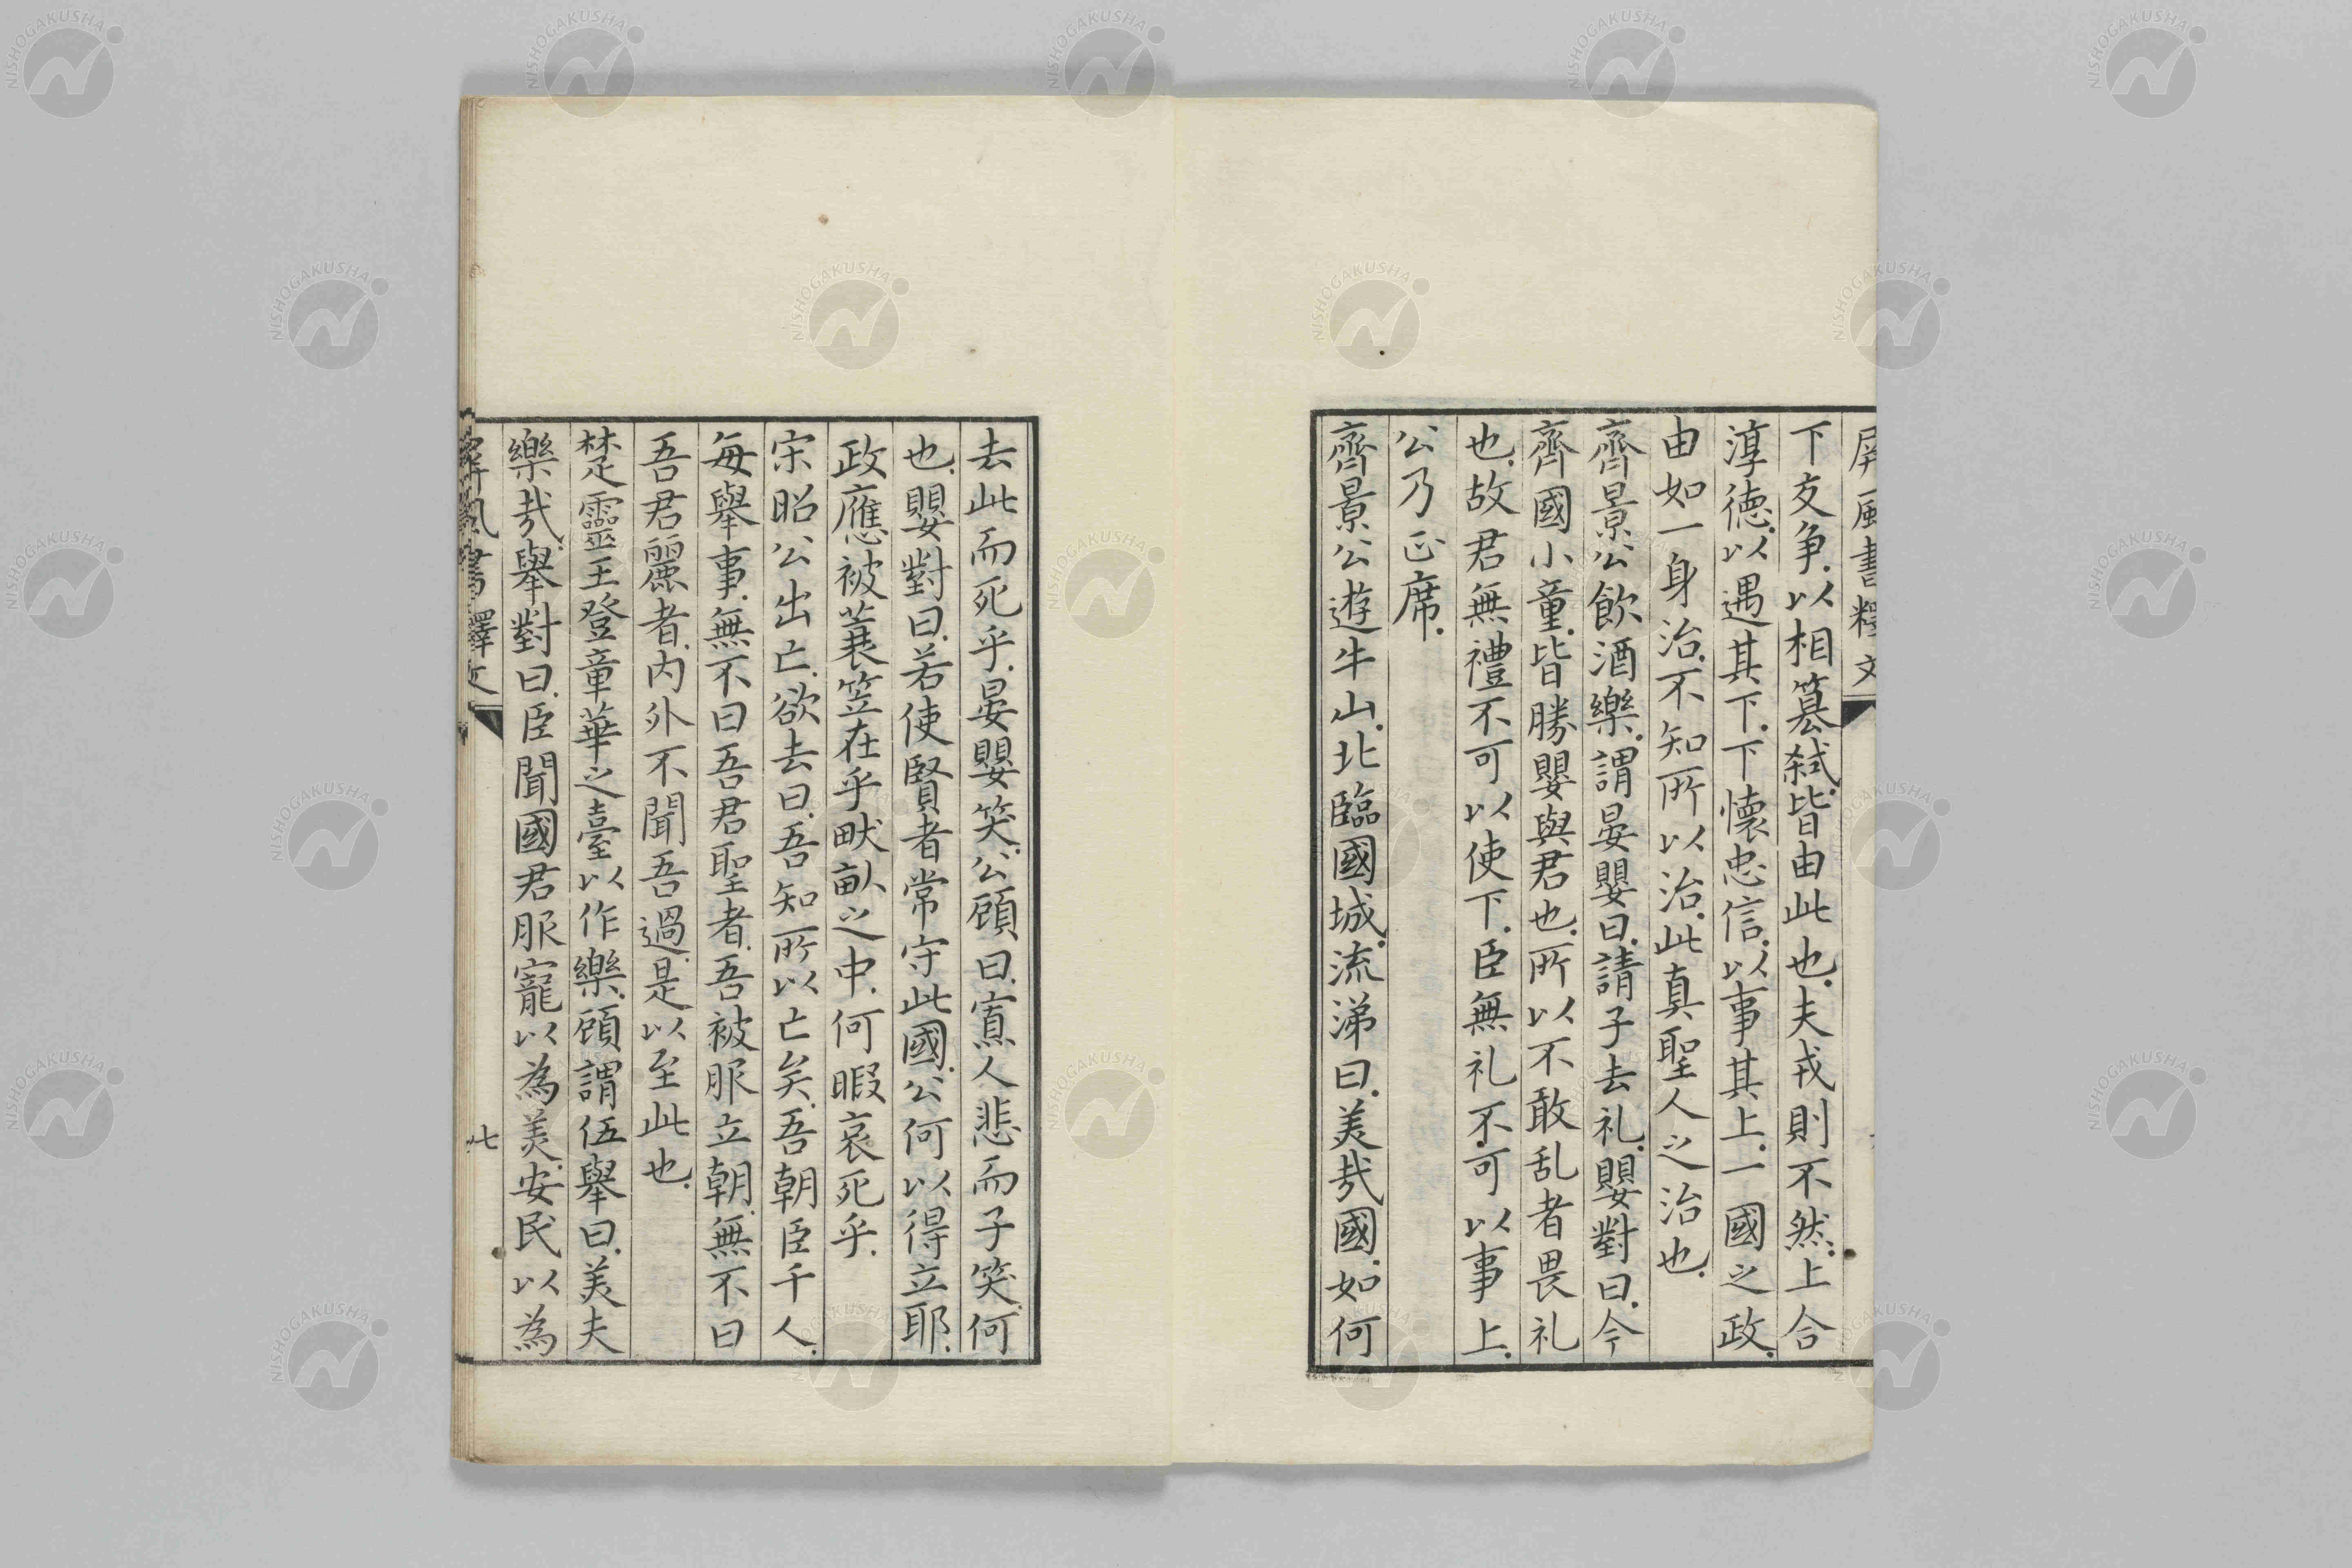 屏風書釋文
下交争.以相篡弑.皆由此也.夫戎則不然.上合
淳德.以遇其下.下懷忠信.以事其上.一國之政.
由如一身治.不知所以治.此真聖人之治也.
齊景公飲酒樂.謂晏嬰曰.請子去礼.嬰對曰.今
齊國小童.皆勝嬰與君也.所以不敢乱者畏礼
也.故君無禮不可以使下.臣無礼不可以事上.
公乃正席.
齊景公遊牛山.北臨國城.流涕曰.美㢤國.如何
去此而死乎.晏嬰笑.公顧曰.寡人悲而子笑.何
也.嬰對曰.若使賢者常守此國.公何以得立耶.
政應被蓑笠在乎畎畝之中.何暇哀死乎.
宋昭公出亡.欲去曰.吾知所以亡矣.吾朝臣千人.
每舉事.無不曰吾君聖者.吾被服立朝.無不曰
吾君麗者.内外不聞吾過.是以至此也.
楚靈王登章華之臺以作樂.顧謂伍舉曰.美夫
樂㢤.舉對曰.臣聞國君服寵以為美.安民以為
屏風書釋文 七
NISHOGAKUSHA